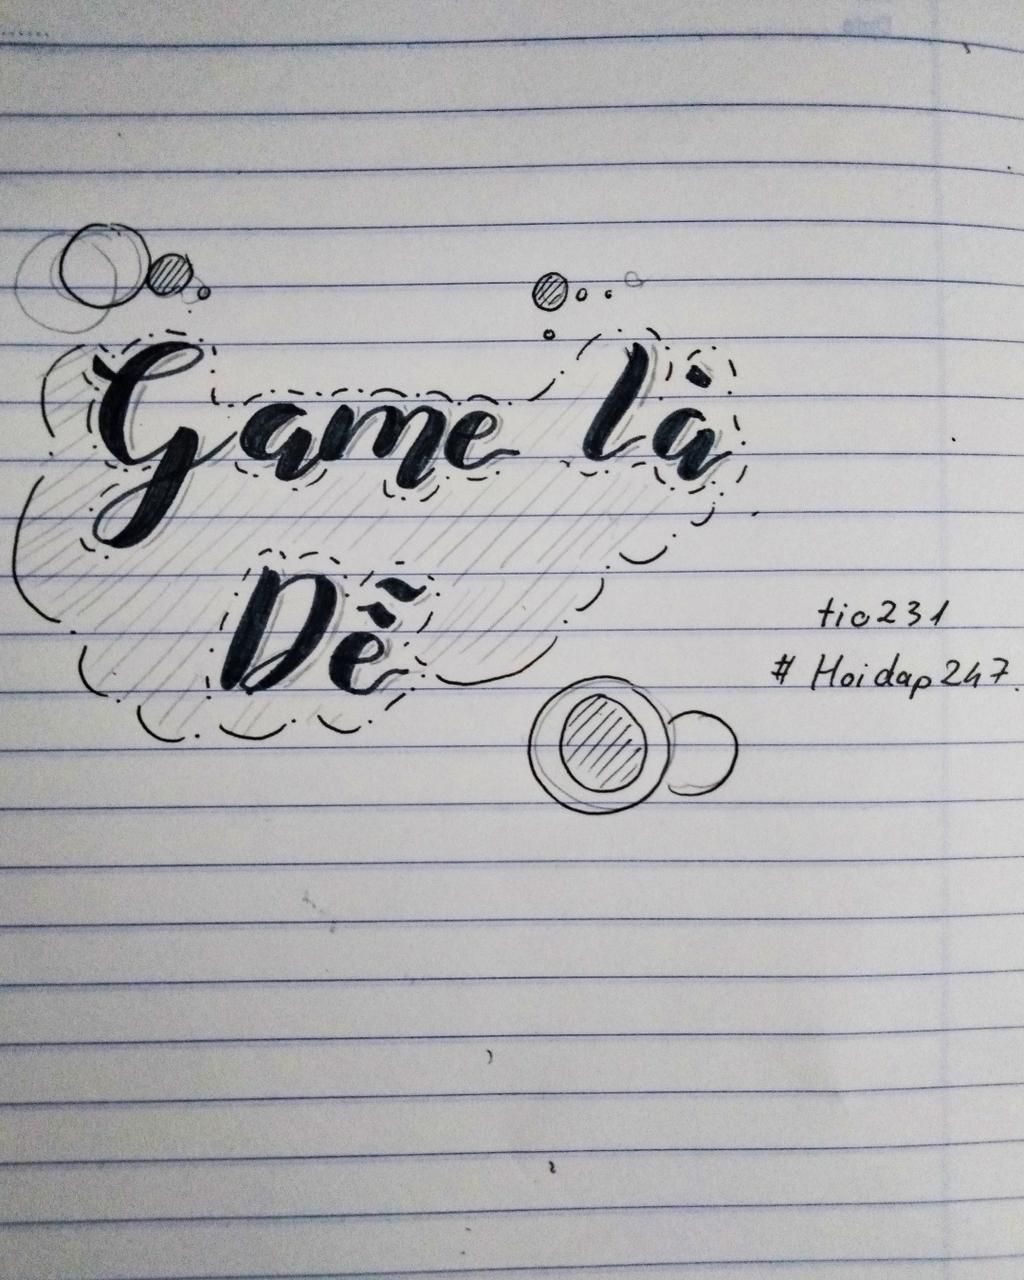 Game là
Dễ
tio231
# Hoidap247